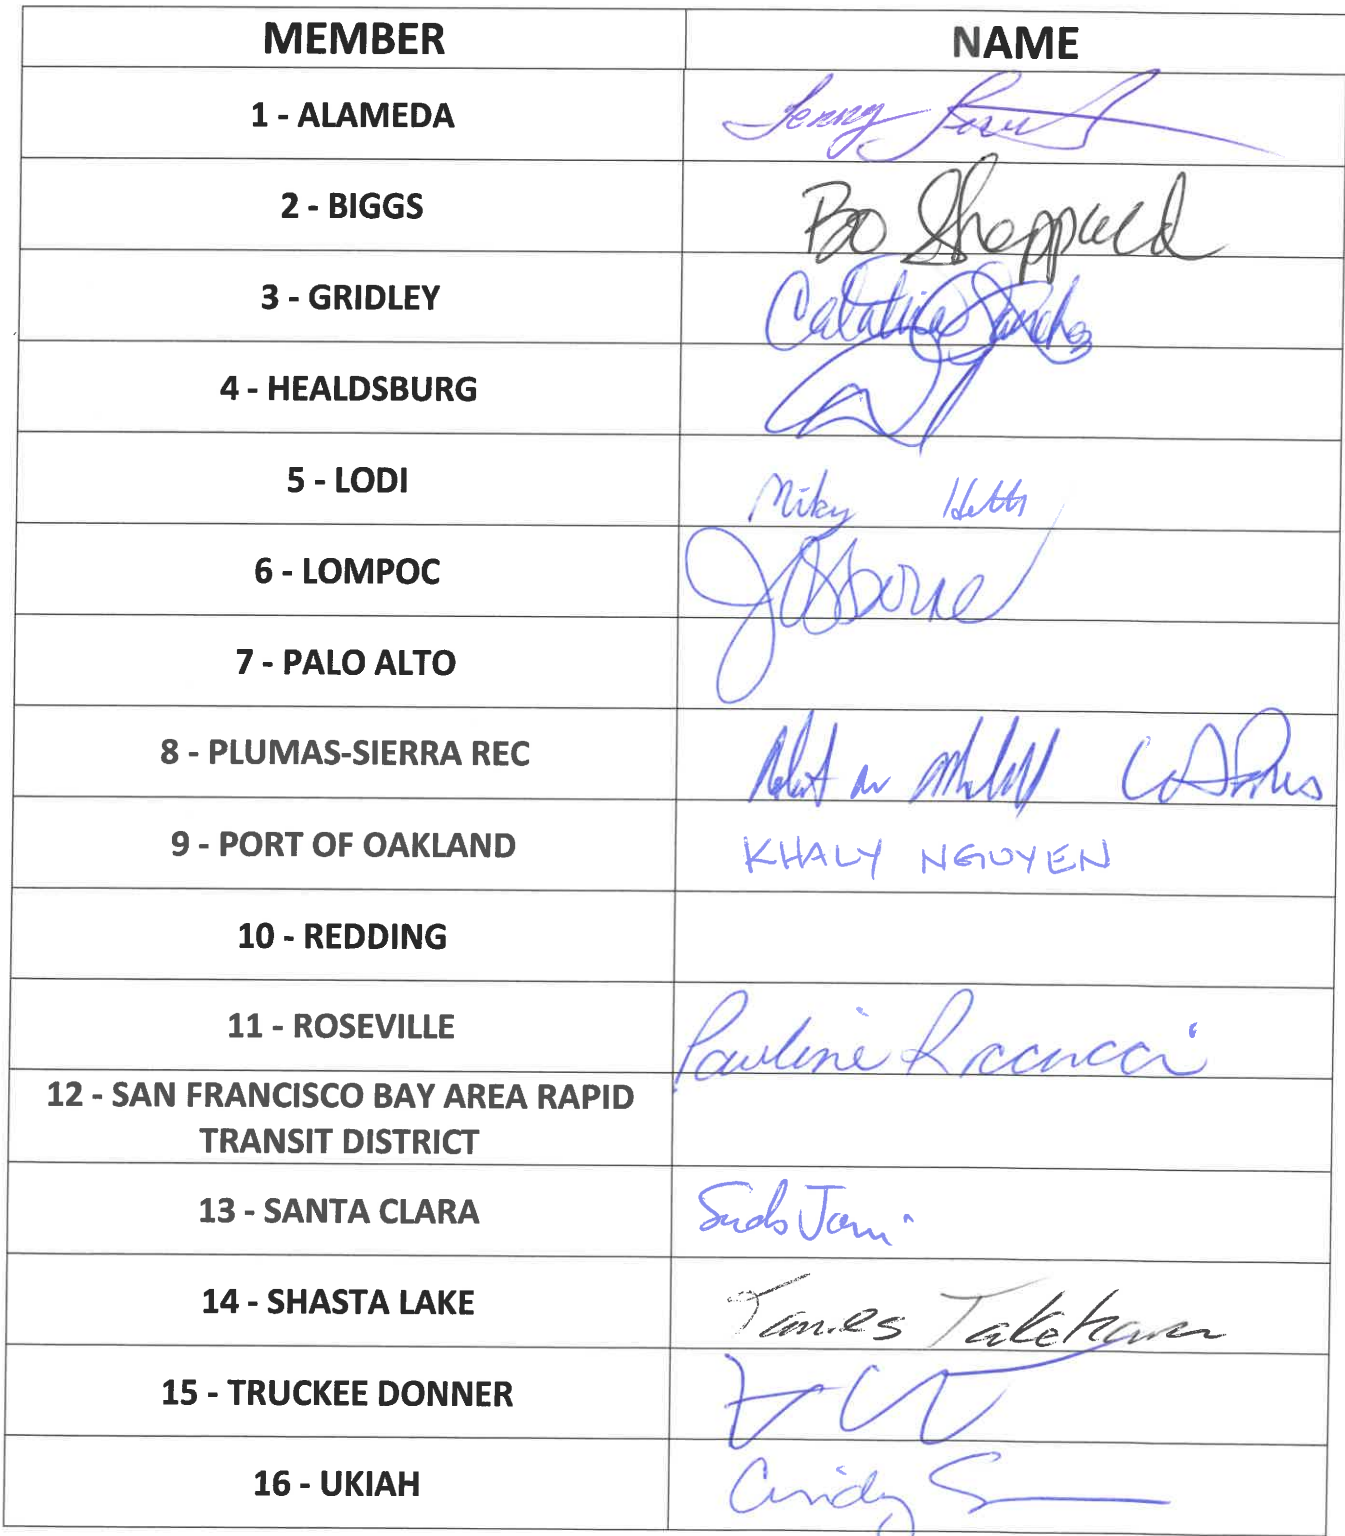 MEMBER NAME
1 - ALAMEDA Jenny
2 - BIGGS Bo Sheppard
3 - GRIDLEY Catalina Sanchez
4 - HEALDSBURG
5 - LODI Mikey
6 - LOMPOC J Osborne
7 - PALO ALTO
8 - PLUMAS-SIERRA REC
9 - PORT OF OAKLAND KHALY NGUYEN
10 - REDDING
11 - ROSEVILLE Pauline Roccucci
12 - SAN FRANCISCO BAY AREA RAPID
TRANSIT DISTRICT
13 - SANTA CLARA Suds Jain
14 - SHASTA LAKE James Takehara
15 - TRUCKEE DONNER
16 - UKIAH Cindy